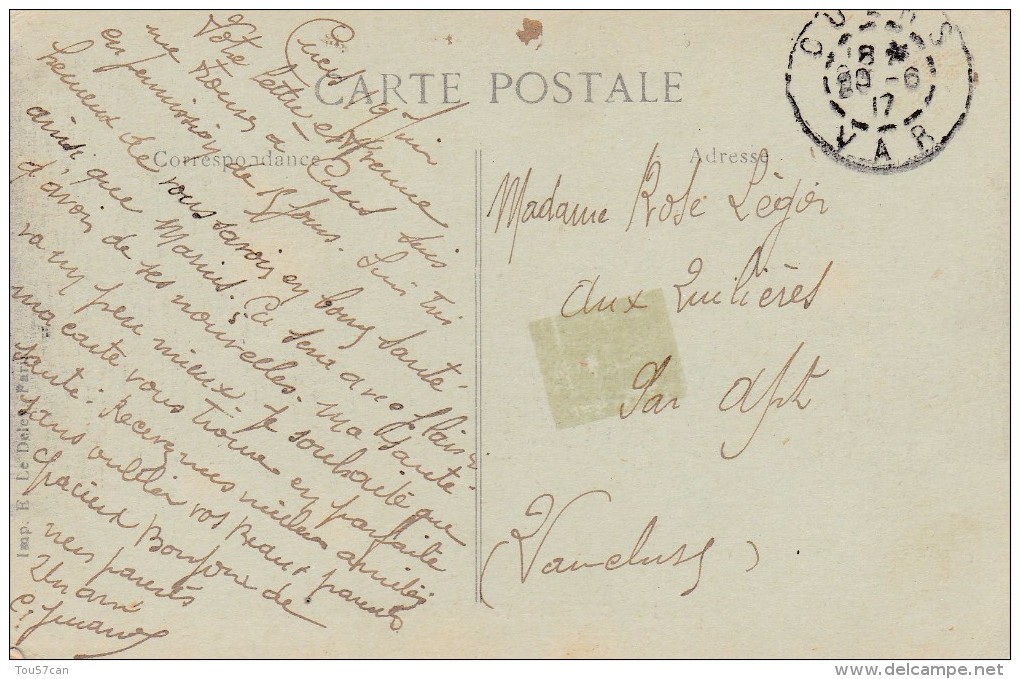 CARTE POSTALE
Correspondance
Adresse
Cuers 19 Juin
Votre lettre et Arrene
me trouve a Cuers suis
en permission de 15 jours. Suis très
heureux de vous savoir en bonne Santé
ainsi que Marius. Ca sera avec plaisir
d'avoir de ses nouvelles. Ma Santé
va un peu mieux. Je souhaite que
ma carte vous trouve en parfaite
Santé. Recevez mes meilleurs amitiés
sans oublier vos Beaux parents
Gracieux Bonjour de
mes parents
Un ami
Madame Rose Légier
aux Quilières
Par Apt
(Vaucluse)
CUERS
8
20 - 6
17
VAR
Imp. E. Le Deley, Paris
Tou57can
www.delcampe.net